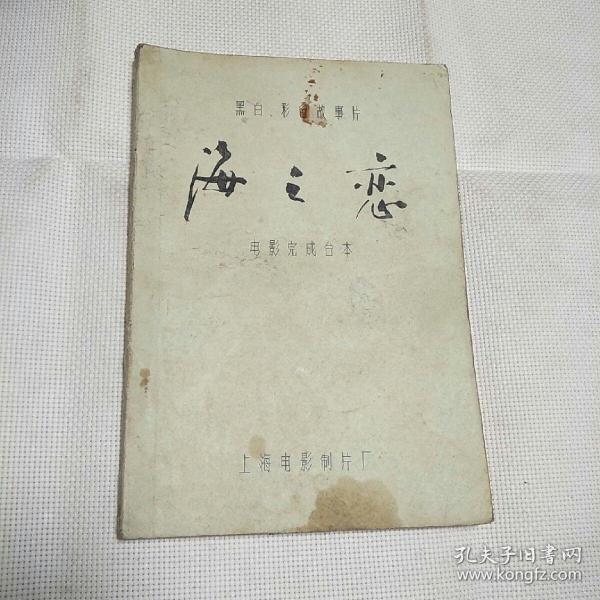 黑白、彩色故事片
海之恋
电影完成台本
上海电影制片厂
孔夫子旧书网
www.kongfz.com